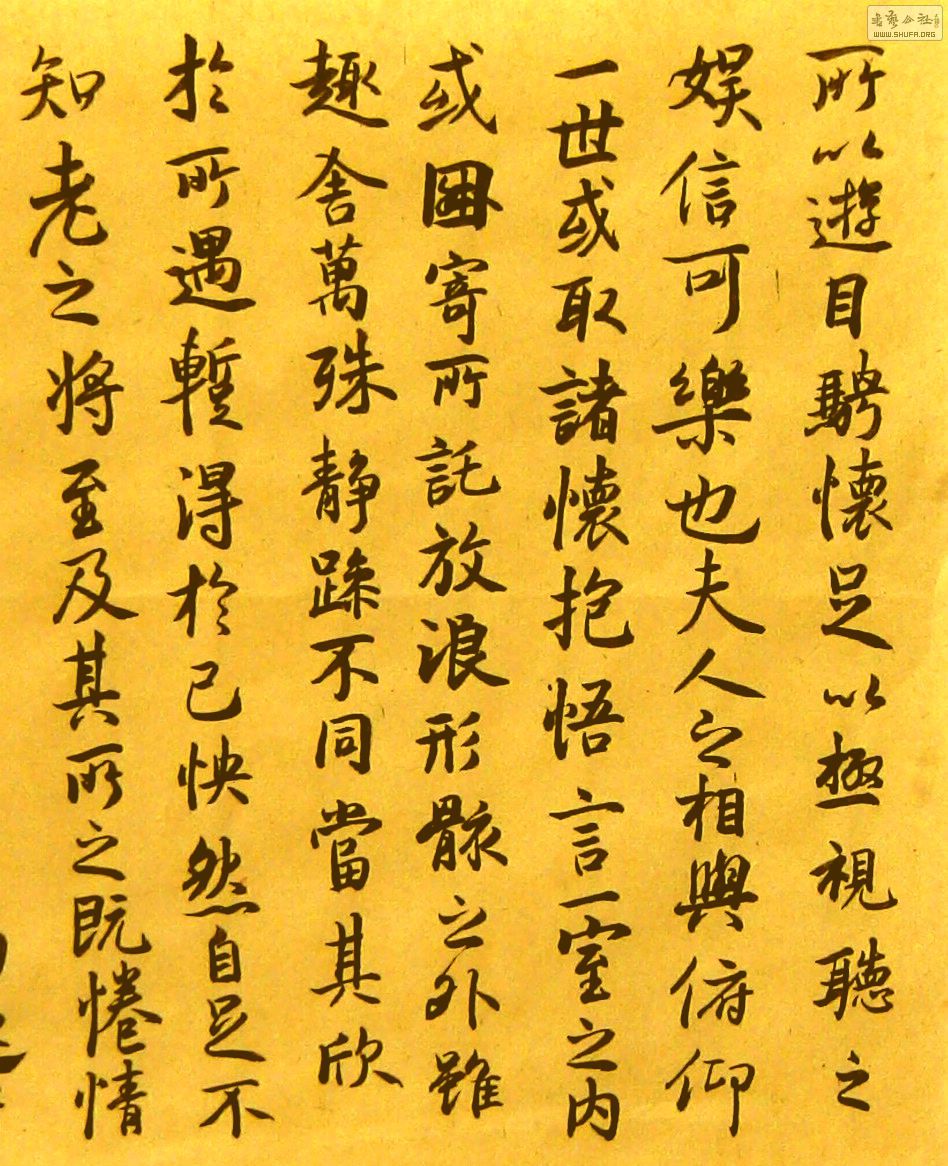 所以遊目騁懷足以極視聽之
娛信可樂也夫人之相與俯仰
一世或取諸懷抱悟言一室之內
或因寄所託放浪形骸之外雖
趣舍萬殊静躁不同當其欣
於所遇暫得於己怏然自足不
知老之將至及其所之既惓情
書藝公社
WWW.SHUFA.ORG